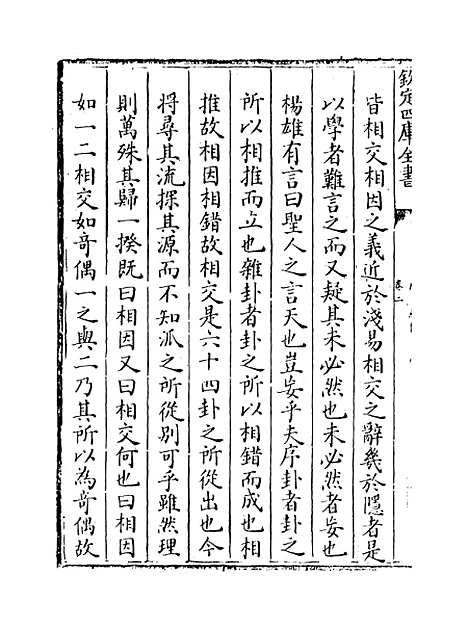 欽定四庫全書
卷二
皆相交相因之義近於淺易相交之辭幾於隱者是
以學者難言之而又疑其未必然也未必然者妄也
楊雄有言曰聖人之言天也豈妄乎夫序卦者卦之
所以相推而立也雜卦者卦之所以相錯而成也相
推故相因相錯故相交是六十四卦之所從出也今
將尋其流探其源而不知派之所從别可乎雖然理
則萬殊其歸一揆既曰相因又曰相交何也曰相因
如一二相交如奇偶一之與二乃其所以為奇偶故